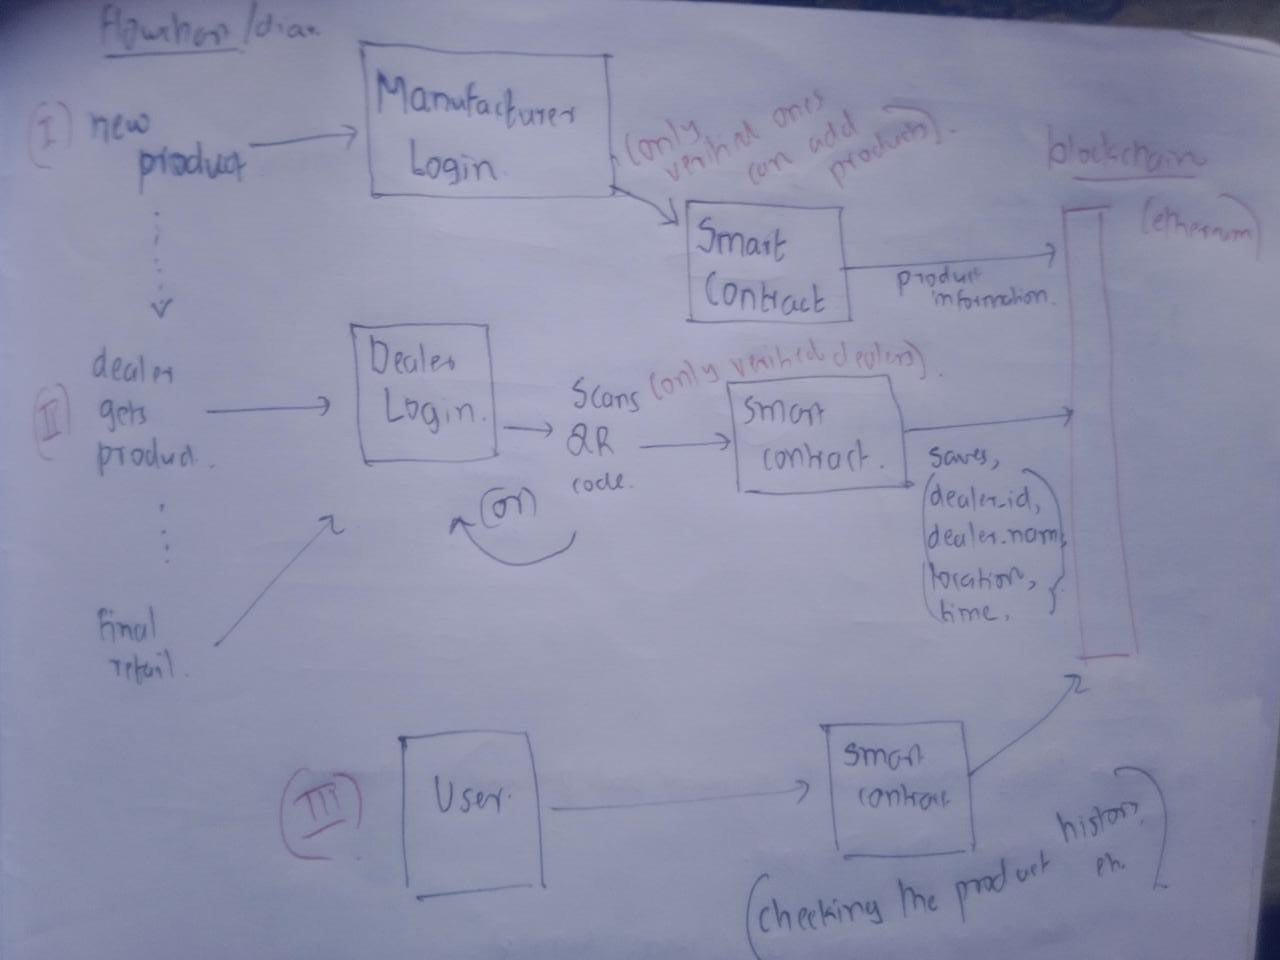 flowchart/diag
(I)
new
product
Manufacturer
Login
(only
verified ones
can add
products).
blockchain
(ethereum)
Smart
Contract
product
information.
(II)
dealer
gets
product.
Dealer
Login.
Scans
QR
code.
(or)
(only verified dealers).
smart
contract.
saves,
dealer_id,
dealer.name,
location,
time,
final
retail.
(III)
User.
smart
contract
(checking the product history
etc.